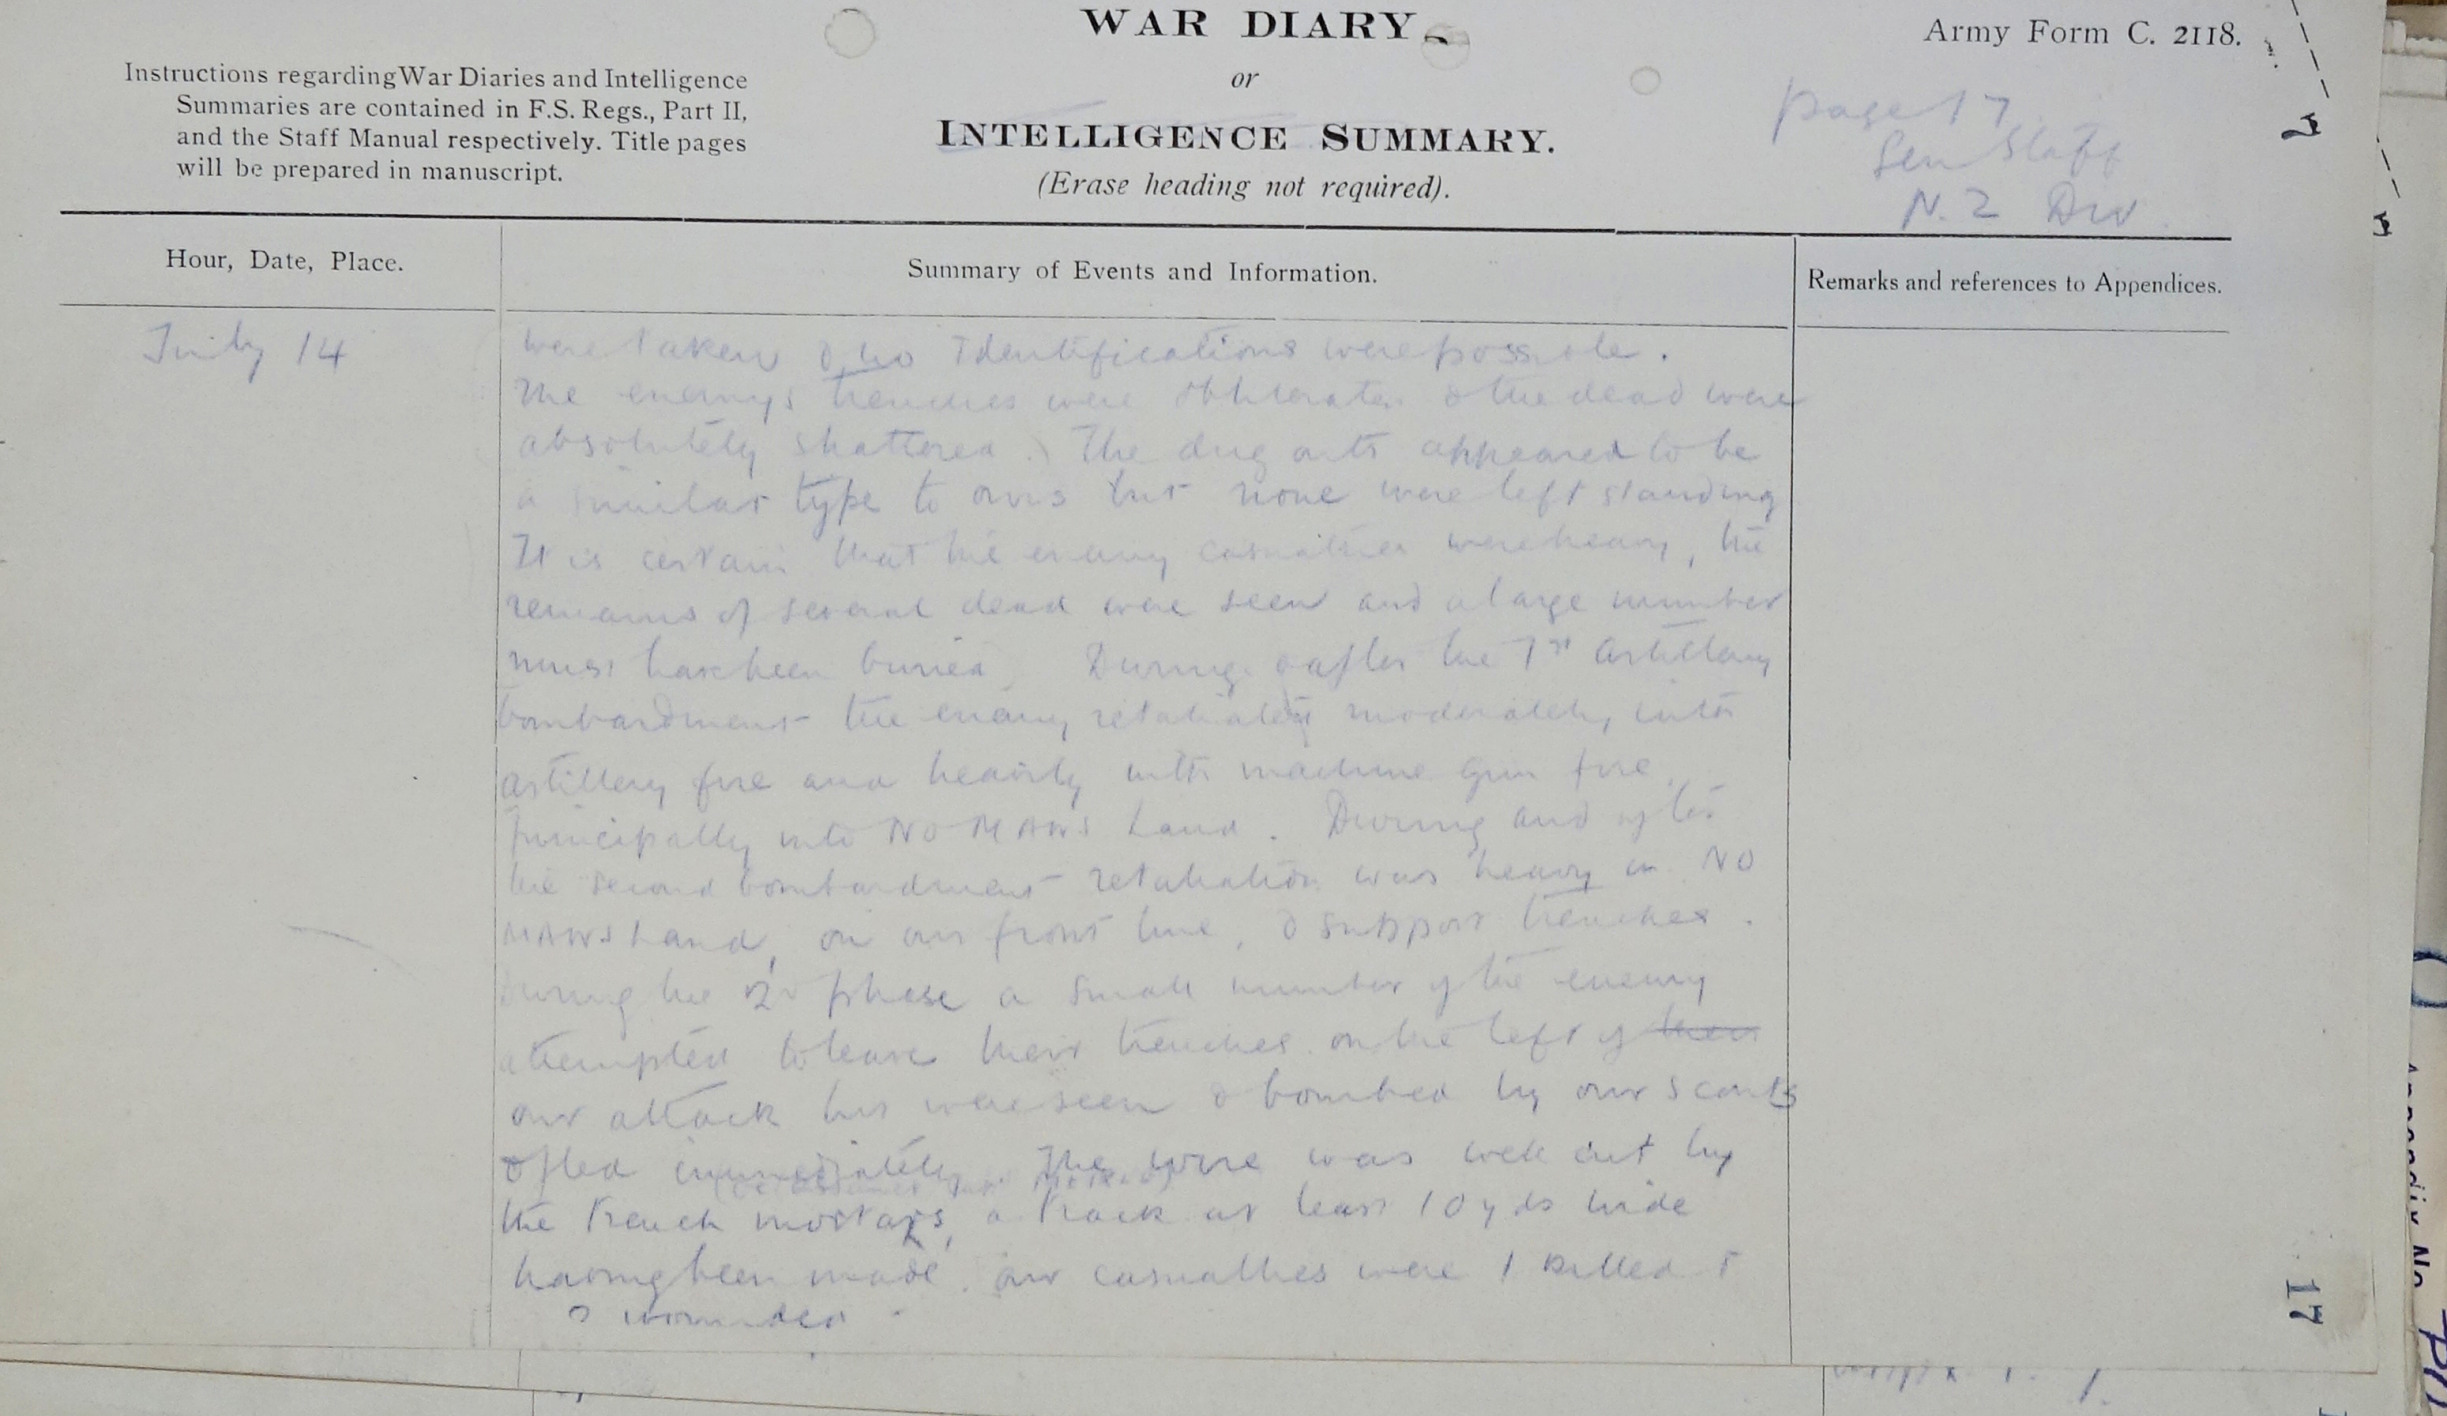 WAR DIARY
or
INTELLIGENCE SUMMARY.
(Erase heading not required).
Army Form C. 2118.
Instructions regarding War Diaries and Intelligence
Summaries are contained in F.S. Regs., Part II,
and the Staff Manual respectively. Title pages
will be prepared in manuscript.
page 17
Gen Staff
N.Z Div
Hour, Date, Place.
Summary of Events and Information.
Remarks and references to Appendices.
July 14
were taken & no identifications were possible.
The enemys trenches were obliterated & the dead were
absolutely shattered. The dug outs appeared to be
a similar type to ours but none were left standing
It is certain that the enemy casualties were heavy, the
remains of several dead were seen and a large number
must have been buried During & after the 1st artillery
bombardment the enemy retaliated moderately with
artillery fire and heavily with machine gun fire
principally into NO MANS Land. During and after
the second bombardment retaliation was heavy in NO
MANS Land, on our front line, & support trenches.
During the 2nd phase a small number of the enemy
attempted to leave their trenches on the left of their
our attack but were seen & bombed by our scouts
& fled immediately. The wire was well cut by
the trench mortars, a track at least 10 yds wide
having been made. our casualties were 1 killed
wounded.
17
Appendix No